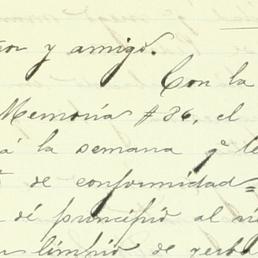 y amigo.
Con la
Memoria # 86, el
á la semana q^e
de conformidad=
dé principio al
limpio de yerba